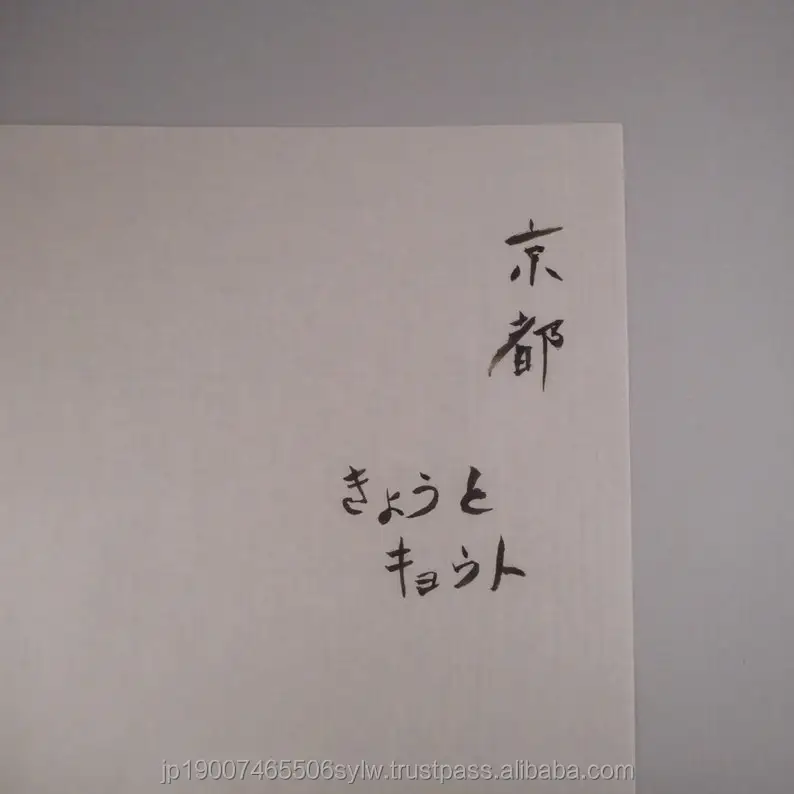 京都
きょうと
キョウト
jp19007465506sylw.trustpass.alibaba.com